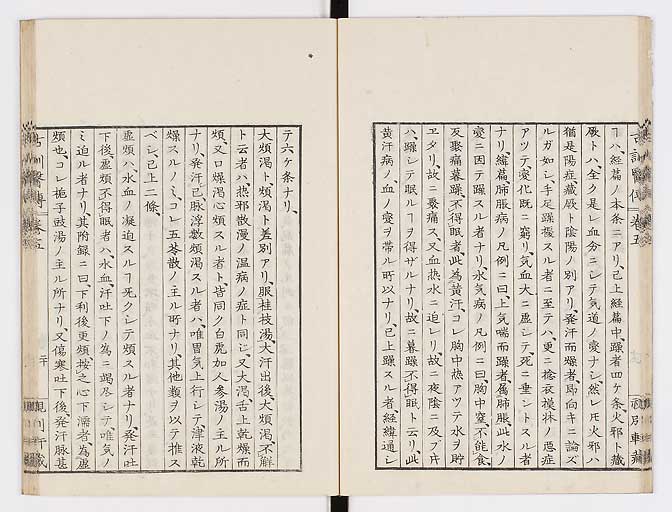 古訓醫傳 卷五
ヿハ、經篇ノ本条ニアリ、已上經篇中、躁者四ケ条火邪ト藏
厥トハ、全ク是レ血分ニシテ、気道ノ変ナシ、然レ𪜈火邪ハ
猶是陽症、藏厥ト陰陽ノ別アリ、発汗而煩者、馬向キニ論ズ
ルガ如シ、手足躁擾スル者ニ至テハ、更ニ捻衣模牀ノ悪症
アツテ変化既ニ窮リ、気血大ニ虚シテ、死ニ垂ントスル者
ナリ、緯篇肺脹病ノ凡例ニ曰、上気喘而躁者、属肺脹、此水ノ
変ニ因テ躁スル者ナリ、水気病ノ凡例ニ曰、胸中窒、不能食、
反聚痛暮躁、不得眠者、此為黄汗、コレ胸中熱アツテ水ヲ貯
ヱタリ、故ニ聚痛ス、又血熱水ニ迫レリ、故ニ夜陰ニ及ブ片
ハ、躁シテ眠ルヿヲ得ザルナリ、故ニ暮躁不得眠ト云リ、此
黄汗病ノ、血ノ変ヲ帯ル所以ナリ、已上躁スル者、經緯通シ
テ六ケ条ナリ、
大煩渇ト、煩渇ト差別アリ、服桂枝湯、大汗出後、大煩渇、不解
ト云者ハ、熱邪散漫ノ温病ノ症ト同シ、又大渇、舌上乾燥而
煩、又口燥渇、心煩スル者ト、皆同ク白虎加人参湯ノ主ル所
ナリ、発汗已、脉浮数煩渇スル者ハ、唯胃気上行シテ、津液乾
燥スルノミ、コレ五苓散ノ主ル所ナリ、其他類ヲ以テ推ス
ベシ、已上二條、
虚煩ハ、水血ノ凝迫スルヿ无クシテ煩スル者ナリ、発汗吐
下後、虚煩不得眠者ハ、水血、汗吐下ノ為ニ竭尽シテ、唯気ノ
ミ迫ル者ナリ、其附録ニ曰、下利後更煩、按之心下濡者、為虚
煩也、コレ梔子豉湯ノ主ル所ナリ、又傷寒吐下後、発汗脉甚
古訓醫傳 卷五
二十